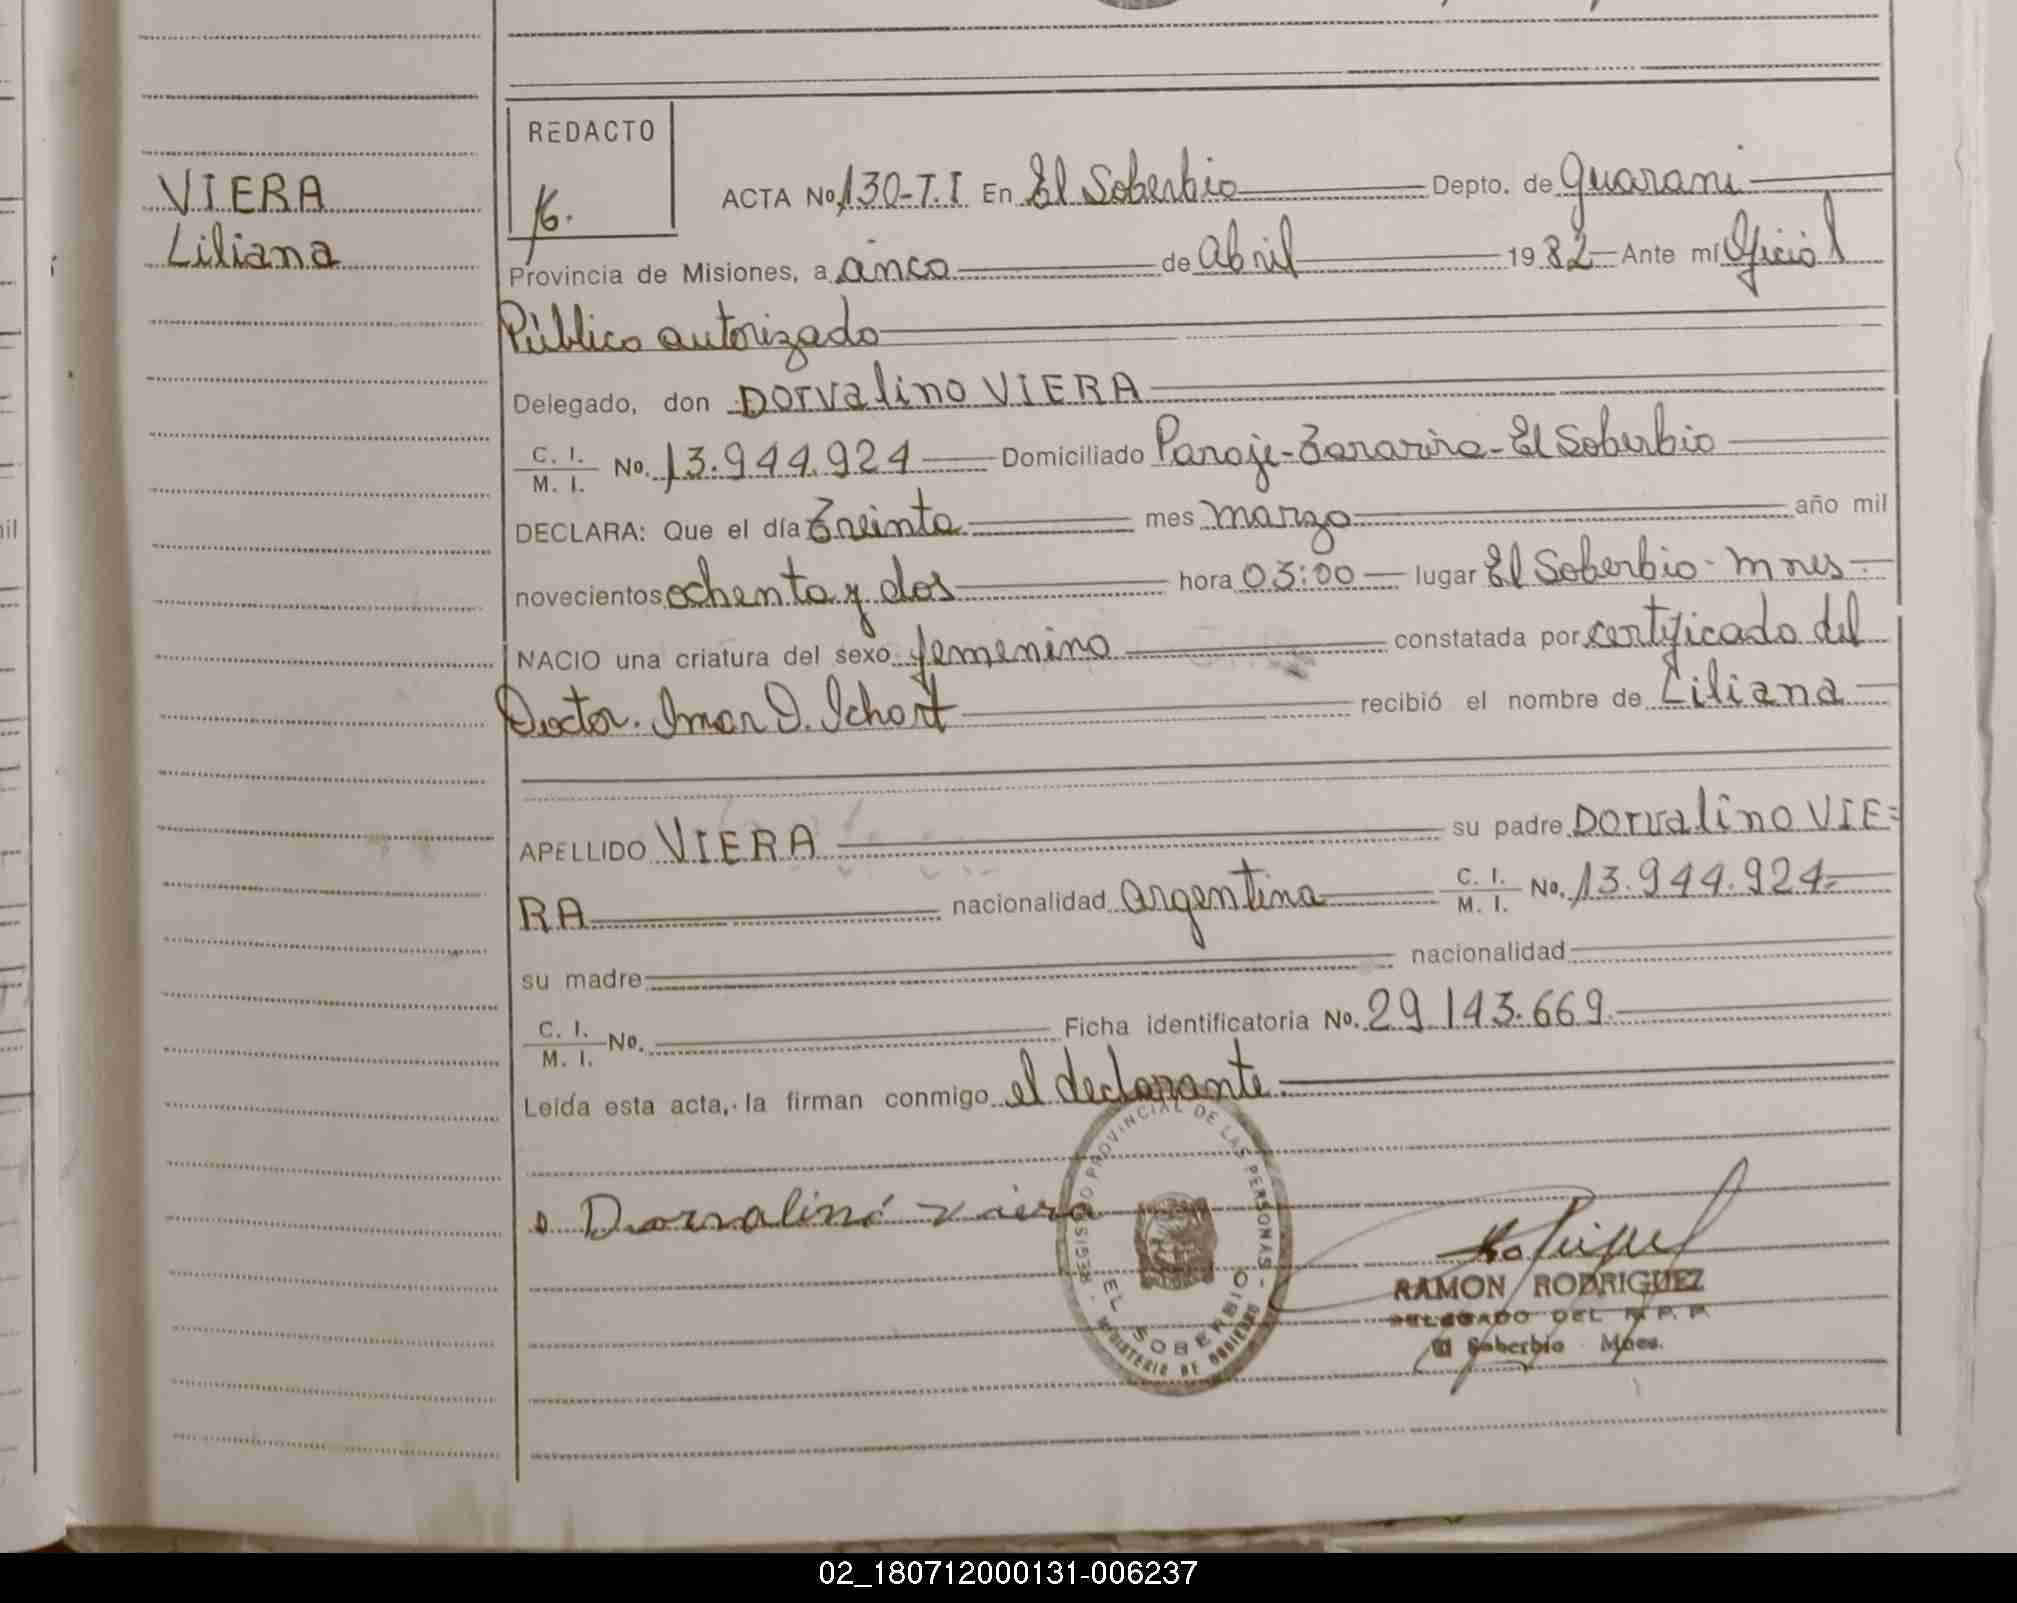 VIERA
Liliana
REDACTO
ACTA No. 130-T.I En El Soberbio Depto. de Guarani
Provincia de Misiones, a cinco de Abril 1982 Ante mí Oficial
Público autorizado
Delegado, don Dorvalino VIERA
C. I. / M. I. No. 13.944.924 Domiciliado Paraje - El Soberbio
DECLARA: Que el día treinta mes marzo año mil
novecientos ochenta y dos hora 03:00 lugar El Soberbio - Mnes
NACIO una criatura del sexo femenino constatada por certificado del
Doctor. recibió el nombre de Liliana
APELLIDO VIERA su padre Dorvalino VIE=
RA nacionalidad Argentina C. I. / M. I. No. 13.944.924
su madre nacionalidad
C. I. / M. I. No. Ficha identificatoria No. 29.143.669
Leída esta acta, la firman conmigo el declarante
Dorvalino Viera
REGISTRO PROVINCIAL DE LAS PERSONAS
EL SOBERBIO
MINISTERIO DE GOBIERNO
RAMON RODRIGUEZ
DELEGADO DEL R. P. P.
El Soberbio Mnes.
02_180712000131-006237